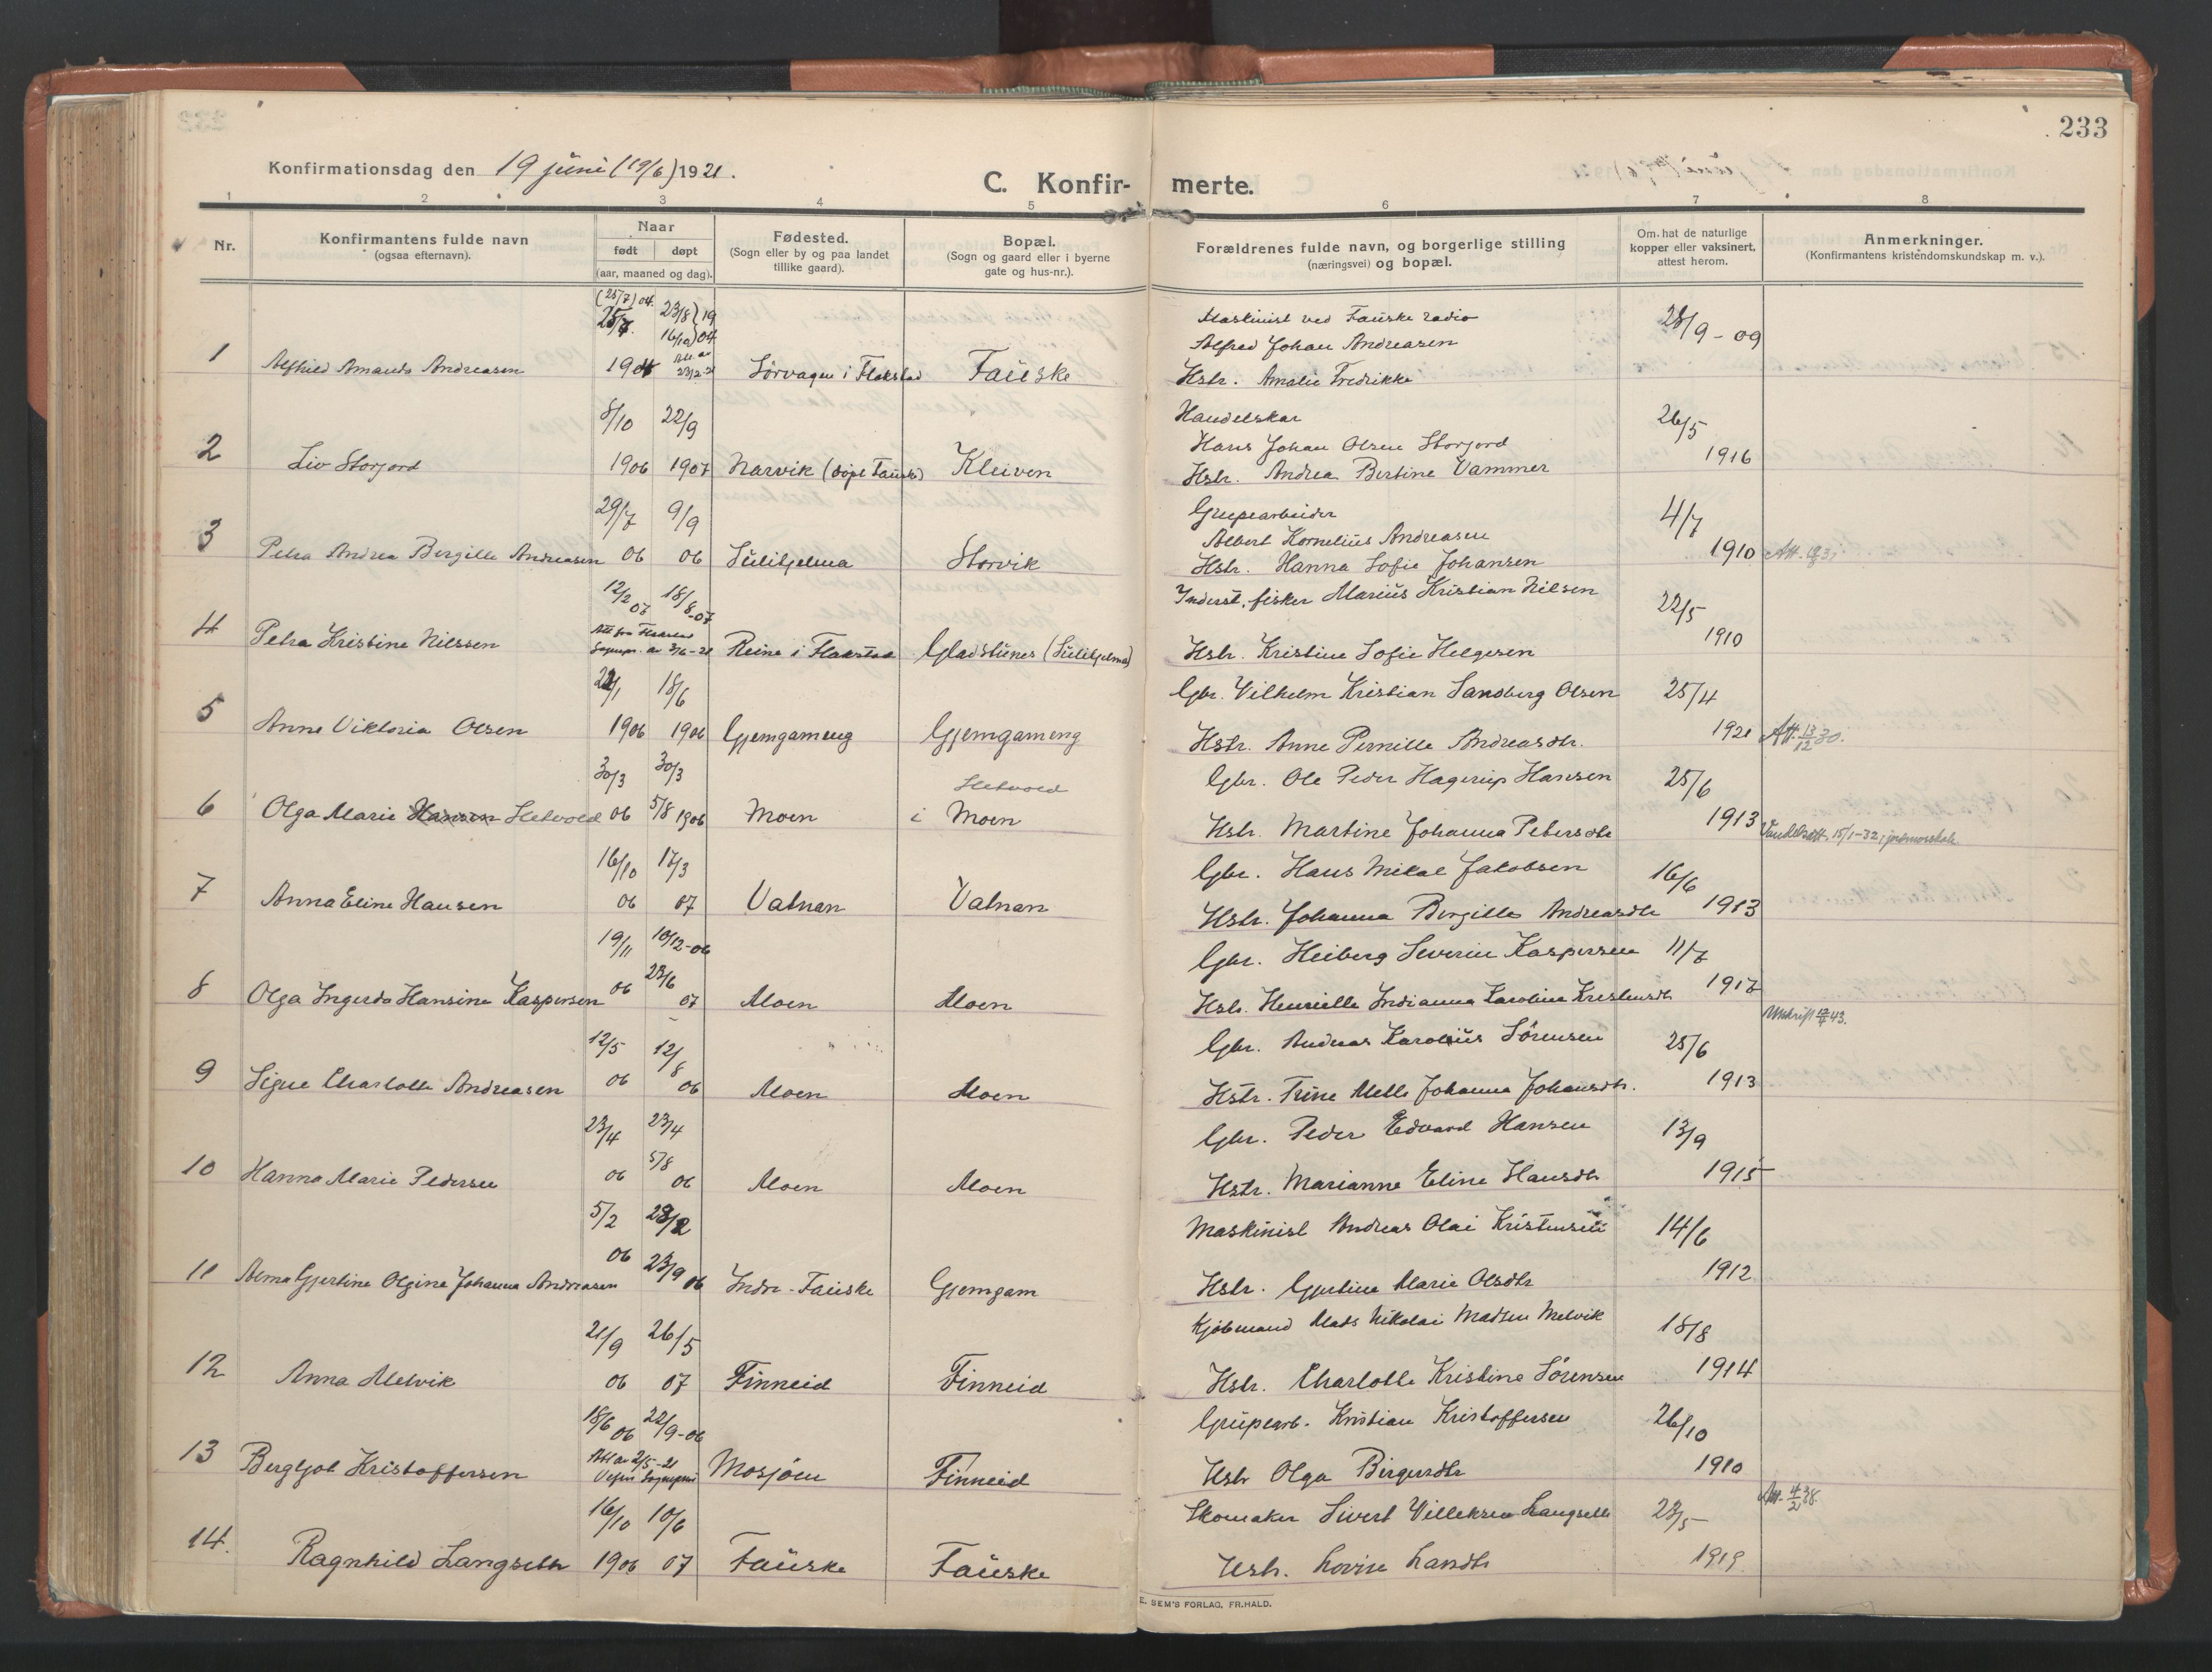 233
Konfirmationsdag den 19 juni (19/6) 1921.
C. Konfirmerte.
1 2 3 4 5 6 7 8
Nr.
Konfirmantens fulde navn
(ogsaa efternavn).
Naar
født døpt
(aar, maaned og dag).
Fødested.
(Sogn eller by og paa landet
tillike gaard).
Bopæl.
(Sogn og gaard eller i byerne
gate og hus-nr.).
Forældrenes fulde navn, og borgerlige stilling
(næringsvei) og bopæl.
Om hat de naturlige
kopper eller vaksinert,
attest herom.
Anmerkninger.
(Konfirmantens kristendomskundskap m. v.).
(25/7) 04. 23/8 19 Maskinist ved Fauske radio
25/7. 16/10 04 Alfred Johan Andreasen 28/9 - 09
1 Alfhild Amanda Andreasen 1904 Sörvagen i Flakstad Fauske Hstr. Amalie Fredrikke
8/10 22/9 Handelskar 26/5
Hans Johan Olsen Storjord
2 Liv Storjord 1906 1907 Narvik (döpt Fauske) Kleiven Hstr. Andrea Bertine Vammer 1916
29/7 9/9 Grupearbeider 4/7
Albert Kornelius Andreasen
3 Petra Andrea Bergitte Andreasen 06 06 Sulitjelma Storvik Hstr. Hanna Sofie Johansen 1910 Att.
12/2 07 18/8-07 Inderst, fisker Marius Kristian Nilsen 22/5
4 Petra Kristine Nilssen Att fra Flakstad Sognepr. av 3/6-21 Reine i Flakstad Gladstunes (Sulitjelma) Hstr. Kristine Sofie Helgesen 1910
22/1 18/6 Gbr. Vilhelm Kristian Sandberg Olsen 25/4
5 Anne Viktoria Olsen 1906 1906 Gjemgameng Gjemgameng Hstr. Anne Pernille Andreasdtr. 1921 Att. 13/12 30.
30/3 30/3 Hetvold Gbr. Ole Peder Hagerup Hansen 25/6
6 Olga Marie Hansen Hetvold 06 5/8 1906 Moen i Moen Hstr. Martine Johanna Petersdtr 1913 Vandelsatt. 15/1-32; jordmorskole.
16/10 17/3 Gbr. Hans Mikal Jakobsen 16/6
7 Anna Eline Hansen 06 07 Vatnan Vatnan Hstr. Johanna Bergitte Andreasdtr 1913
19/11 10/12-06 Gbr. Heiberg Severin Kaspersen 11/7
8 Olga Ingerda Hansine Kaspersen 06 23/6 07 Moen Moen Hstr. Henriette Indianna Karoline Kristensdtr 1917
Utskrift 43.
12/5 12/8 Gbr. Andreas Karolius Sörensen 25/6
9 Signe Charlotte Andreasen 06 06 Moen Moen Hstr. Trine Mette Johanna Johansdtr. 1913
23/4 23/4 Gbr. Peder Edvard Hansen 13/9
10 Hanna Marie Pedersen 06 5/8 06 Moen Moen Hstr. Marianne Eline Hansdtr 1915
5/2 28/2 Maskinist Andreas Olai Kristensen 14/6
11 Alma Gjertine Olgine Johanna Andreasen 06 23/9 06 Indre-Fauske Gjemgam Hstr. Gjertine Marie Olsdtr 1912
21/9 26/5 Kjöbmand Mads Nikolai Madsen Melvik 18/8
12 Anna Melvik 06 07 Finneid Finneid Hstr. Charlotte Kristine Sörensen 1914
18/6 06 22/9-06 Grupearb. Kristian Kristoffersen 26/10
13 Bergljot Kristoffersen Att av 2/5-21 Vefsn Sognepr. Mosjöen Finneid Hstr Olga Birgersdtr 1910
Att. 4/2 38.
16/10 10/6 Skomaker Sivert Villeksen Langseth 23/5
14. Ragnhild Langseth 1906 07 Fauske Fauske Hstr. Lovise Larsdtr 1919
E. SEM'S FORLAG, FR.HALD.